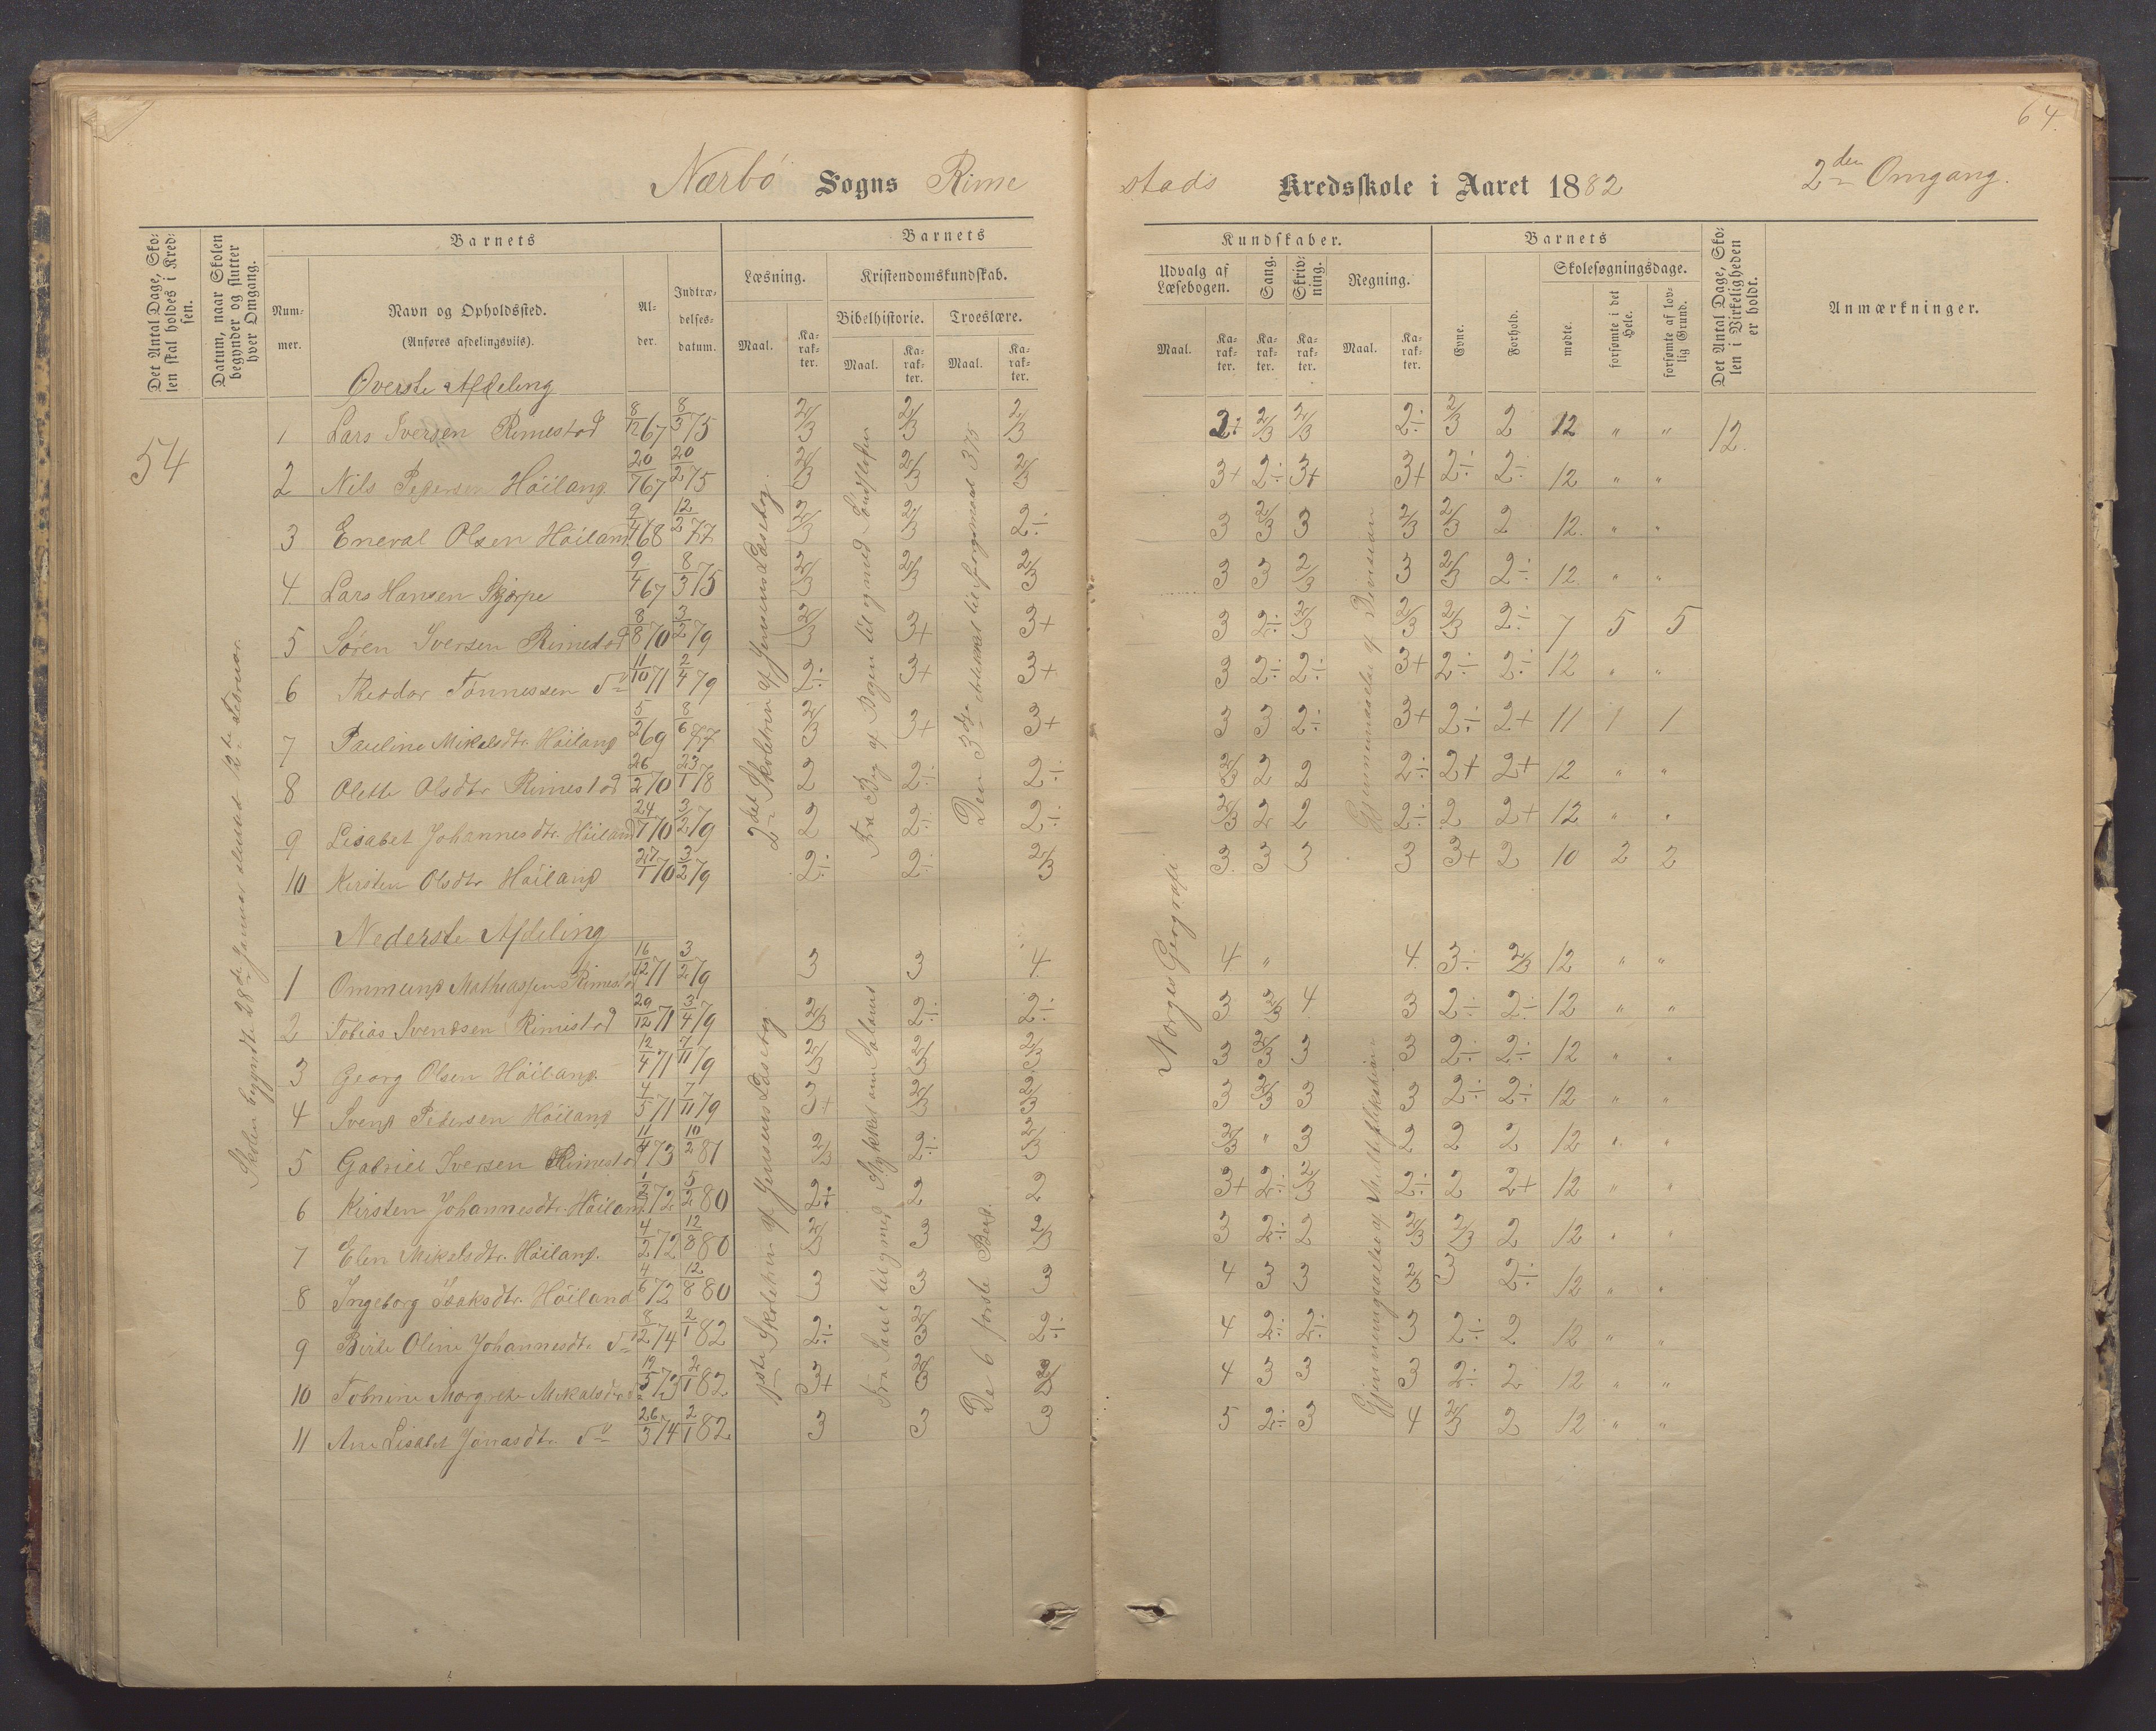 64.
Nærbö Sogns Rimestads Kredsskole i Aaret 1882 2den Omgang.
Det Antal Dage, Skolen skal holdes i Kredsen.
Datum, naar Skolen begynder og slutter hver Omgang.
Barnets
Nummer.
Navn og Opholdssted.
(Anføres afdelingsviis).
Alder.
Indtrædelsesdatum.
Barnets Kundskaber.
Læsning.
Maal. Karakter.
Kristendomskundskab.
Bibelhistorie. Troeslære.
Maal. Karakter. Maal. Karakter.
Udvalg af Læsebogen.
Maal. Karakter.
Sang. Karakter.
Skrivning. Karakter.
Regning.
Maal. Karakter.
Barnets
Evne. Forhold.
Skolesøgningsdage.
mødte. forsømte i det Hele. forsømte af lovlig Grund.
Det Antal Dage, Skolen i Virkeligheden er holdt.
Anmærkninger.
54
Skolen begyndte 28de Januar sluttet 12te Februar.
2det Skoletrin af Jensens Læsebog
Den 3die Artikkel til spørgsmaal 375
Norges Geografi
Øverste Afdeling
1 Lars Iversen Rimestad 8/12 67 8/3 75 2/3 2/3 2/3 2÷ 2/3 2/3 2÷ 2/3 2 12 " " 12.
2 Nils Pedersen Höiland 20/7 67 20/2 75 2/3 2/3 2/3 3+ 2÷ 3+ 3+ 2÷ 2÷ 12 " "
3 Eneval Olsen Höiland 9/4 68 12/2 77 2/3 2/3 2÷ 3 2/3 3 2/3 2/3 2 12. " "
4. Lars Hansen Skjörpe 9/4 67 8/3 75 2/3 2/3 2/3 3 3 2/3 3 2/3 2÷ 12. " "
5 Sören Iversen Rimestad 8/8 70 3/2 79 2/3 3+ 3+ 3 2÷ 2/3 2/3 2/3 2÷ 7 5 5
6 Theodor Tönnessen do 11/10 71 2/4 79 2÷ 3+ 3+ 3 2÷ 2÷ 3+ 2÷ 2÷ 12 " "
7 Pauline Mikalsdtr. Höiland 5/2 69 8/6 77 2/3 3+ 3+ 3 3 2÷ 3+ 2÷ 2+ 11 1 1
8 Olette Olsdtr Rimestad 26/2 70 23/1 78 2 2÷ 2÷ 2/3 2 2 2÷ 2+ 2+ 12 " "
9 Lisabet Johannesdtr. Höiland 24/1 70 3/2 79 2 2÷ 2÷ 2/3 2 2 2÷ 2 2+ 12 " "
10 Kirsten Olsdtr Höiland 27/1 70 3/2 79 2÷ 2÷ 2/3 3 3 3 3 3+ 2 10 2 2
Nederste Afdeling
1ste Skoletrin af Jensens Læsebog
De 6 første Bud.
Gjennemgaaelse af Multiplikation
1 Ommund Mathiassen Rimestad 16/12 71 3/2 79 3 3 4. 4 " 4. 3÷ 2/3 12 " "
2 Tobias Svendsen Rimestad 29/12 71 3/4 79 2/3 2÷ 2÷ 3 2/3 4. 3 2÷ 2÷ 12 " "
3 Georg Olsen Höiland. 12/4 71 7/11 79 2/3 2/3 2/3 3 2/3 3 3 2÷ 2÷ 12 " "
4 Svend Pedersen Höiland 4/5 71 7/11 79 3+ 2/3 2/3 3 2/3 3 3 2÷ 2÷ 12 " "
5 Gabriel Iversen Rimestad 11/4 73 10/2 81 2/3 2÷ 2/3 2/3 " 3 2 2 2 12 " "
6 Kirsten Johannesdtr. Höiland 1/3 72 5/2 80 2÷ 2 2 3+ 2÷ 2/3 2÷ 2 2+ 12 " "
7 Elen Mikalsdtr. Höiland. 4/2 72 12/8 80 2/3 3 2/3 3 2÷ 2 2/3 2/3 2 12 " "
8 Ingeborg Isaksdtr. Höiland 4/6 72 12/8 80 3 3 3 4 3 3 2/3 3 2÷ 12 " "
9 Birte Oline Johannesdtr. do 8/2 74 2/1 82 2÷ 2/3 2÷ 4 2÷ 2÷ 3 2÷ 2 12 " "
10 Tobnine Margrethe Mikalsdtr do 19/5 73 2/1 82 3+ 2/3 2/3 4 3 3 3 2÷ 2 12 " "
11 Ane Lisabet Jonasdtr. do 26/3 74 2/1 82 3 3 3 5 2÷ 3 4 2/3 2 12 " "